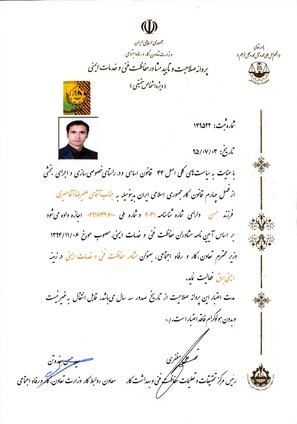 جمهوری اسلامی ایران
وزارت تعاون، کار و رفاه اجتماعی
پروانه صلاحیت و تأیید مشاور حفاظت فنی و خدمات ایمنی
(ویژه اشخاص حقیقی)
شماره ثبت:
تاریخ: ۹۵/۰۷/۰۳
با عنایت به سیاست‌های کلی اصل ۴۴ قانون اساسی و در راستای خصوصی‌سازی و اجرای بخشی
از فصل چهارم قانون کار جمهوری اسلامی ایران بدینوسیله به جناب آقای
فرزند حسن دارای شماره شناسنامه و شماره ملی اجازه داده می‌شود
بر اساس آیین نامه مشاوران حفاظت فنی و خدمات ایمنی، مصوب مورخ ۱۳۹۴/۱۱/۰۶
وزیر محترم تعاون، کار و رفاه اجتماعی، بعنوان مشاور حفاظت فنی و خدمات ایمنی در زمینه
ایمنی برق فعالیت نماید.
مدت اعتبار این پروانه صلاحیت از تاریخ صدور سه سال می‌باشد، قابل انتقال به غیر نیست
و بدون هولوگرام فاقد اعتبار است.
رئیس مرکز تحقیقات و تعلیمات حفاظت فنی و بهداشت کار
معاون روابط کار وزارت تعاون، کار و رفاه اجتماعی